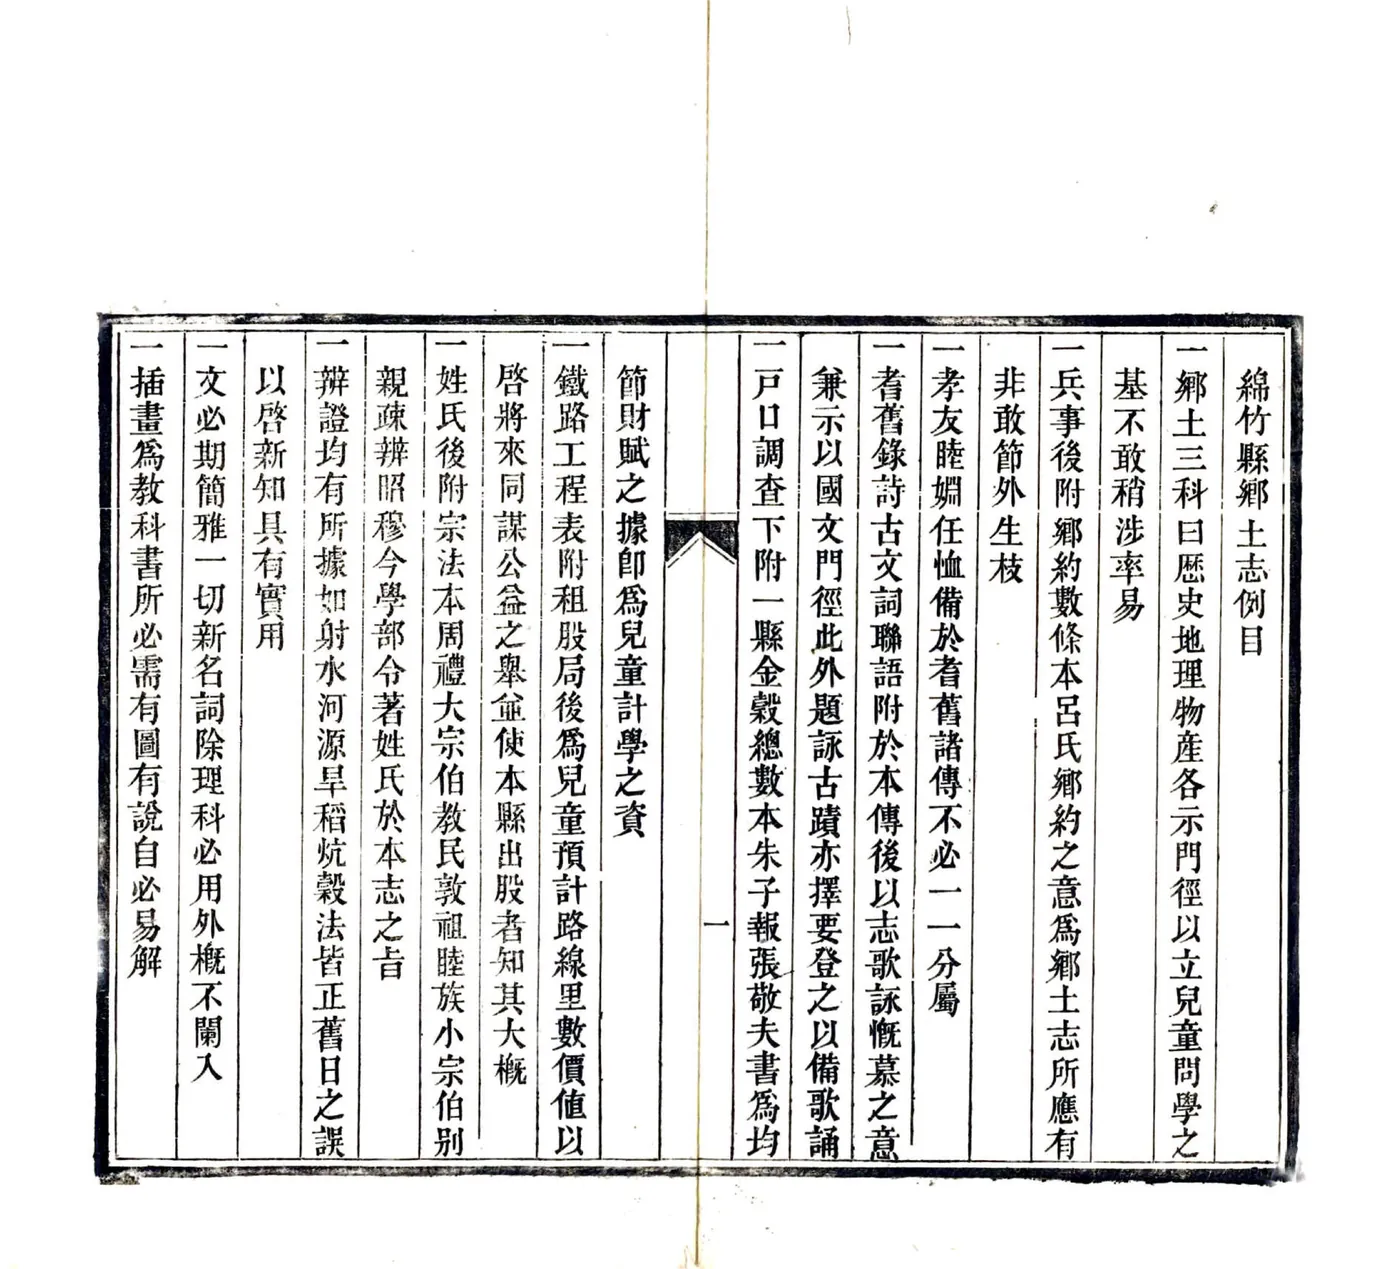 綿竹縣鄉土志例目
一鄉土三科曰歷史地理物產各示門徑以立兒童問學之
基不敢稍涉率易
一兵事後附鄉約數條本呂氏鄉約之意爲鄉土志所應有
非敢節外生枝
一孝友睦婣任恤備於耆舊諸傳不必一一分屬
一耆舊錄詩古文詞聯語附於本傳後以志歌詠慨慕之意
兼示以國文門徑此外題詠古蹟亦擇要登之以備歌誦
一戸口調查下附一縣金穀總數本朱子報張敬夫書爲均
一
節財賦之據卽爲兒童計學之資
一鐵路工程表附租股局後爲兒童預計路線里數價值以
啓將來同謀公益之舉並使本縣出股者知其大概
一姓氏後附宗法本周禮大宗伯敎民敦祖睦族小宗伯别
親疎辨昭穆今學部令著姓氏於本志之旨
一辨證均有所據如射水河源旱稻炕穀法皆正舊日之誤
以啓新知具有實用
一文必期簡雅一切新名詞除理科必用外概不闌入
一插畫爲教科書所必需有圖有說自必易解